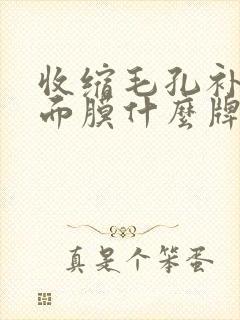 收缩毛孔补
而膜什麼牌
真是个笨蛋